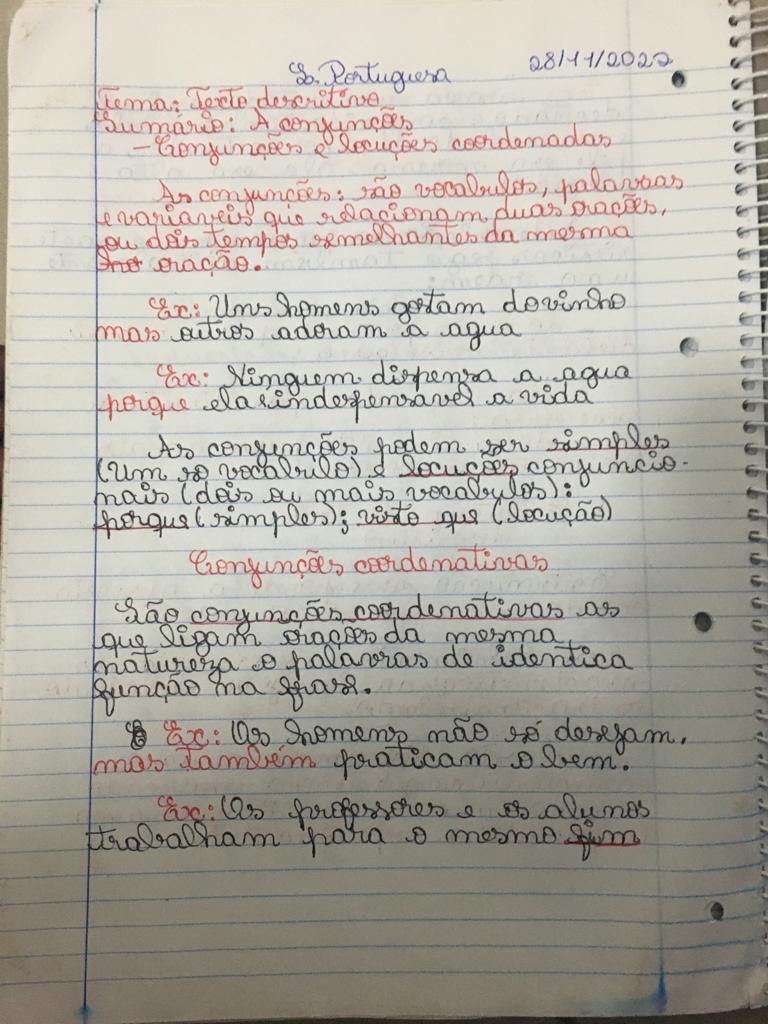 L. Portuguesa 28/11/2022
Tema: Texto descritivo
Sumário: A conjunções
- Conjunções e locuções coordenadas
As conjunções: são vocabulos, palavras
evariaveis que relacionam duas orações,
ou dois tempos semelhantes da mesma
oração.
Ex: Uns homens gostam do vinho
mas outros adoram a agua
Ex: Ninguem dispensa a agua
porque ela é indespensavel a vida
As conjunções podem ser simples
(Um so vocabulo) e locuções conjuncio-
nais (dois ou mais vocabulos):
porque (simples); visto que (locução)
Conjunções coordenativas
São conjunções coordenativas as
que ligam orações da mesma
natureza o palavras de identica
função na frase.
Ex: Os homens não só desejam,
mas também praticam o bem.
Ex: Os professores e os alunos
trabalham para o mesmo fim